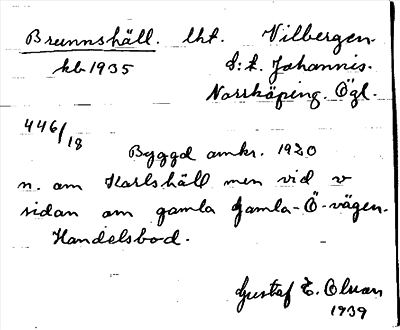 Brunnshäll. lht. Vilbergen.
kb 1935 S:t. Johannis.
Norrköping. Ögl.
446/18
Byggd omkr. 1920
n. om Karlshäll men vid v
sidan om gamla Gamla-Ö-vägen.
Handelsbod.
Gustaf E. Olsson
1939